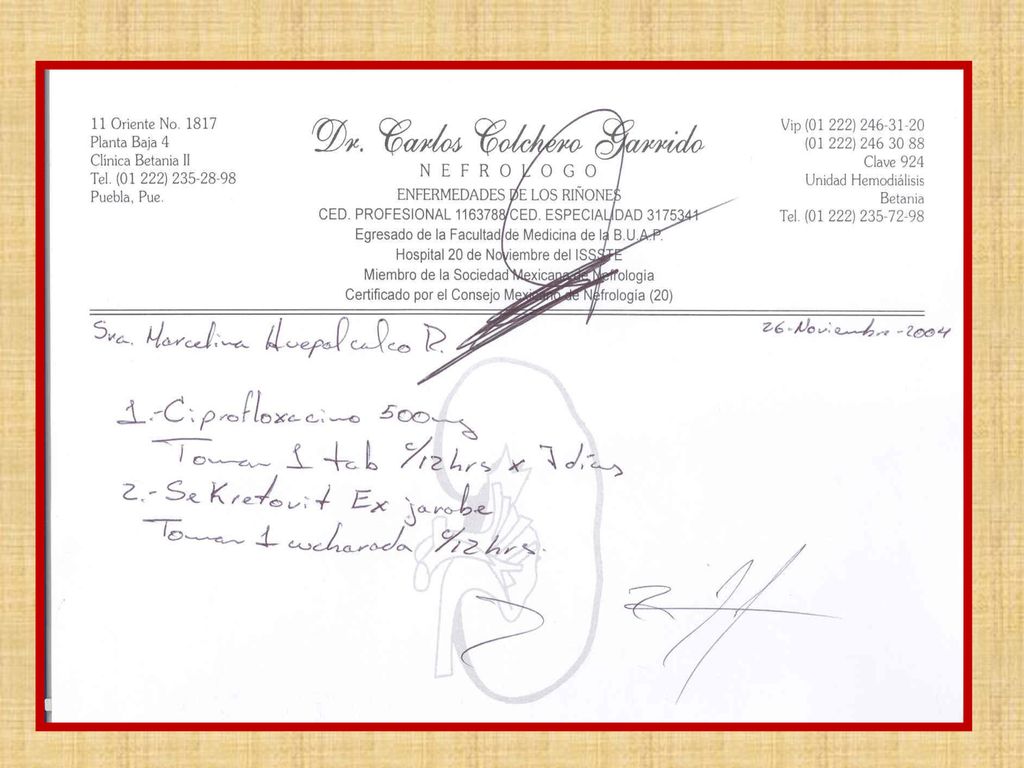 11 Oriente No. 1817
Planta Baja 4
Clínica Betania II
Tel. (01 222) 235-28-98
Puebla, Pue.
Dr. Carlos Colchero Garrido
NEFROLOGO
ENFERMEDADES DE LOS RIÑONES
CED. PROFESIONAL 1163788 CED. ESPECIALIDAD 3175341
Egresado de la Facultad de Medicina de la B.U.A.P.
Hospital 20 de Noviembre del ISSSTE
Miembro de la Sociedad Mexicana de Nefrología
Certificado por el Consejo Mexicano de Nefrología (20)
Vip (01 222) 246-31-20
(01 222) 246 30 88
Clave 924
Unidad Hemodiálisis
Betania
Tel. (01 222) 235-72-98
Sra. Marcelina Huepalcalco R.
26-Noviembre-2004
1.-Ciprofloxacino 500mg
Tomar 1 tab c/12hrs x 7 días
2.-SeKretovit Ex jarabe
Tomar 1 cucharada c/12hrs.